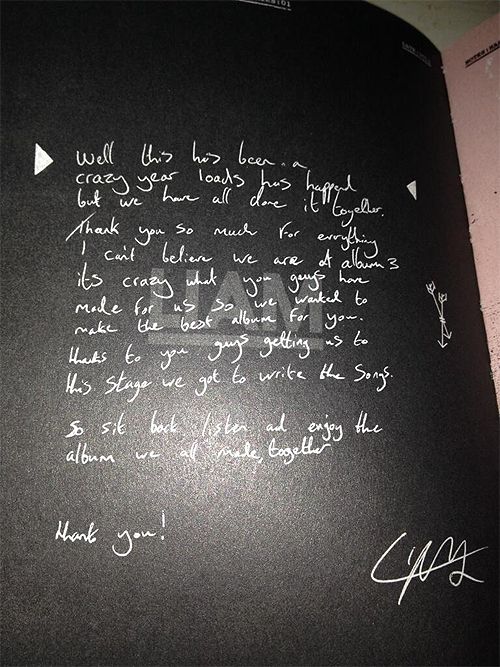 Well this has been a
crazy year loads has happend
but we have all done it together.
Thank you so much for everything
I can't believe we are at album 3
its crazy what you guys have
made for us so we wanted to
make the best album for you.
thanks to you guys getting us to
this stage we got to write the songs.
So sit back listen and enjoy the
album we all made, together
thank you!
LIAM